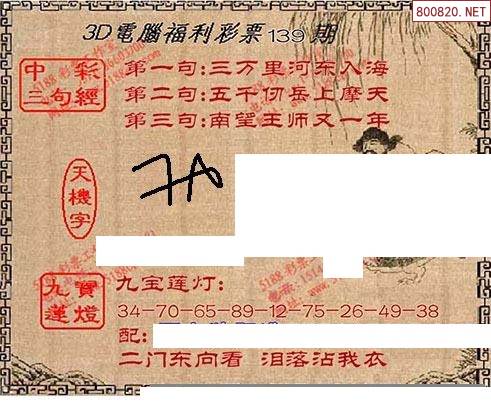 800820.NET
3D電腦福利彩票139期
中彩三句經
第一句:三万里河东入海
第二句:五千仞岳上摩天
第三句:南望王师又一年
天機字
九寶蓮燈
九宝莲灯:
34-70-65-89-12-75-26-49-38
配:
二门东向看 泪落沾我衣